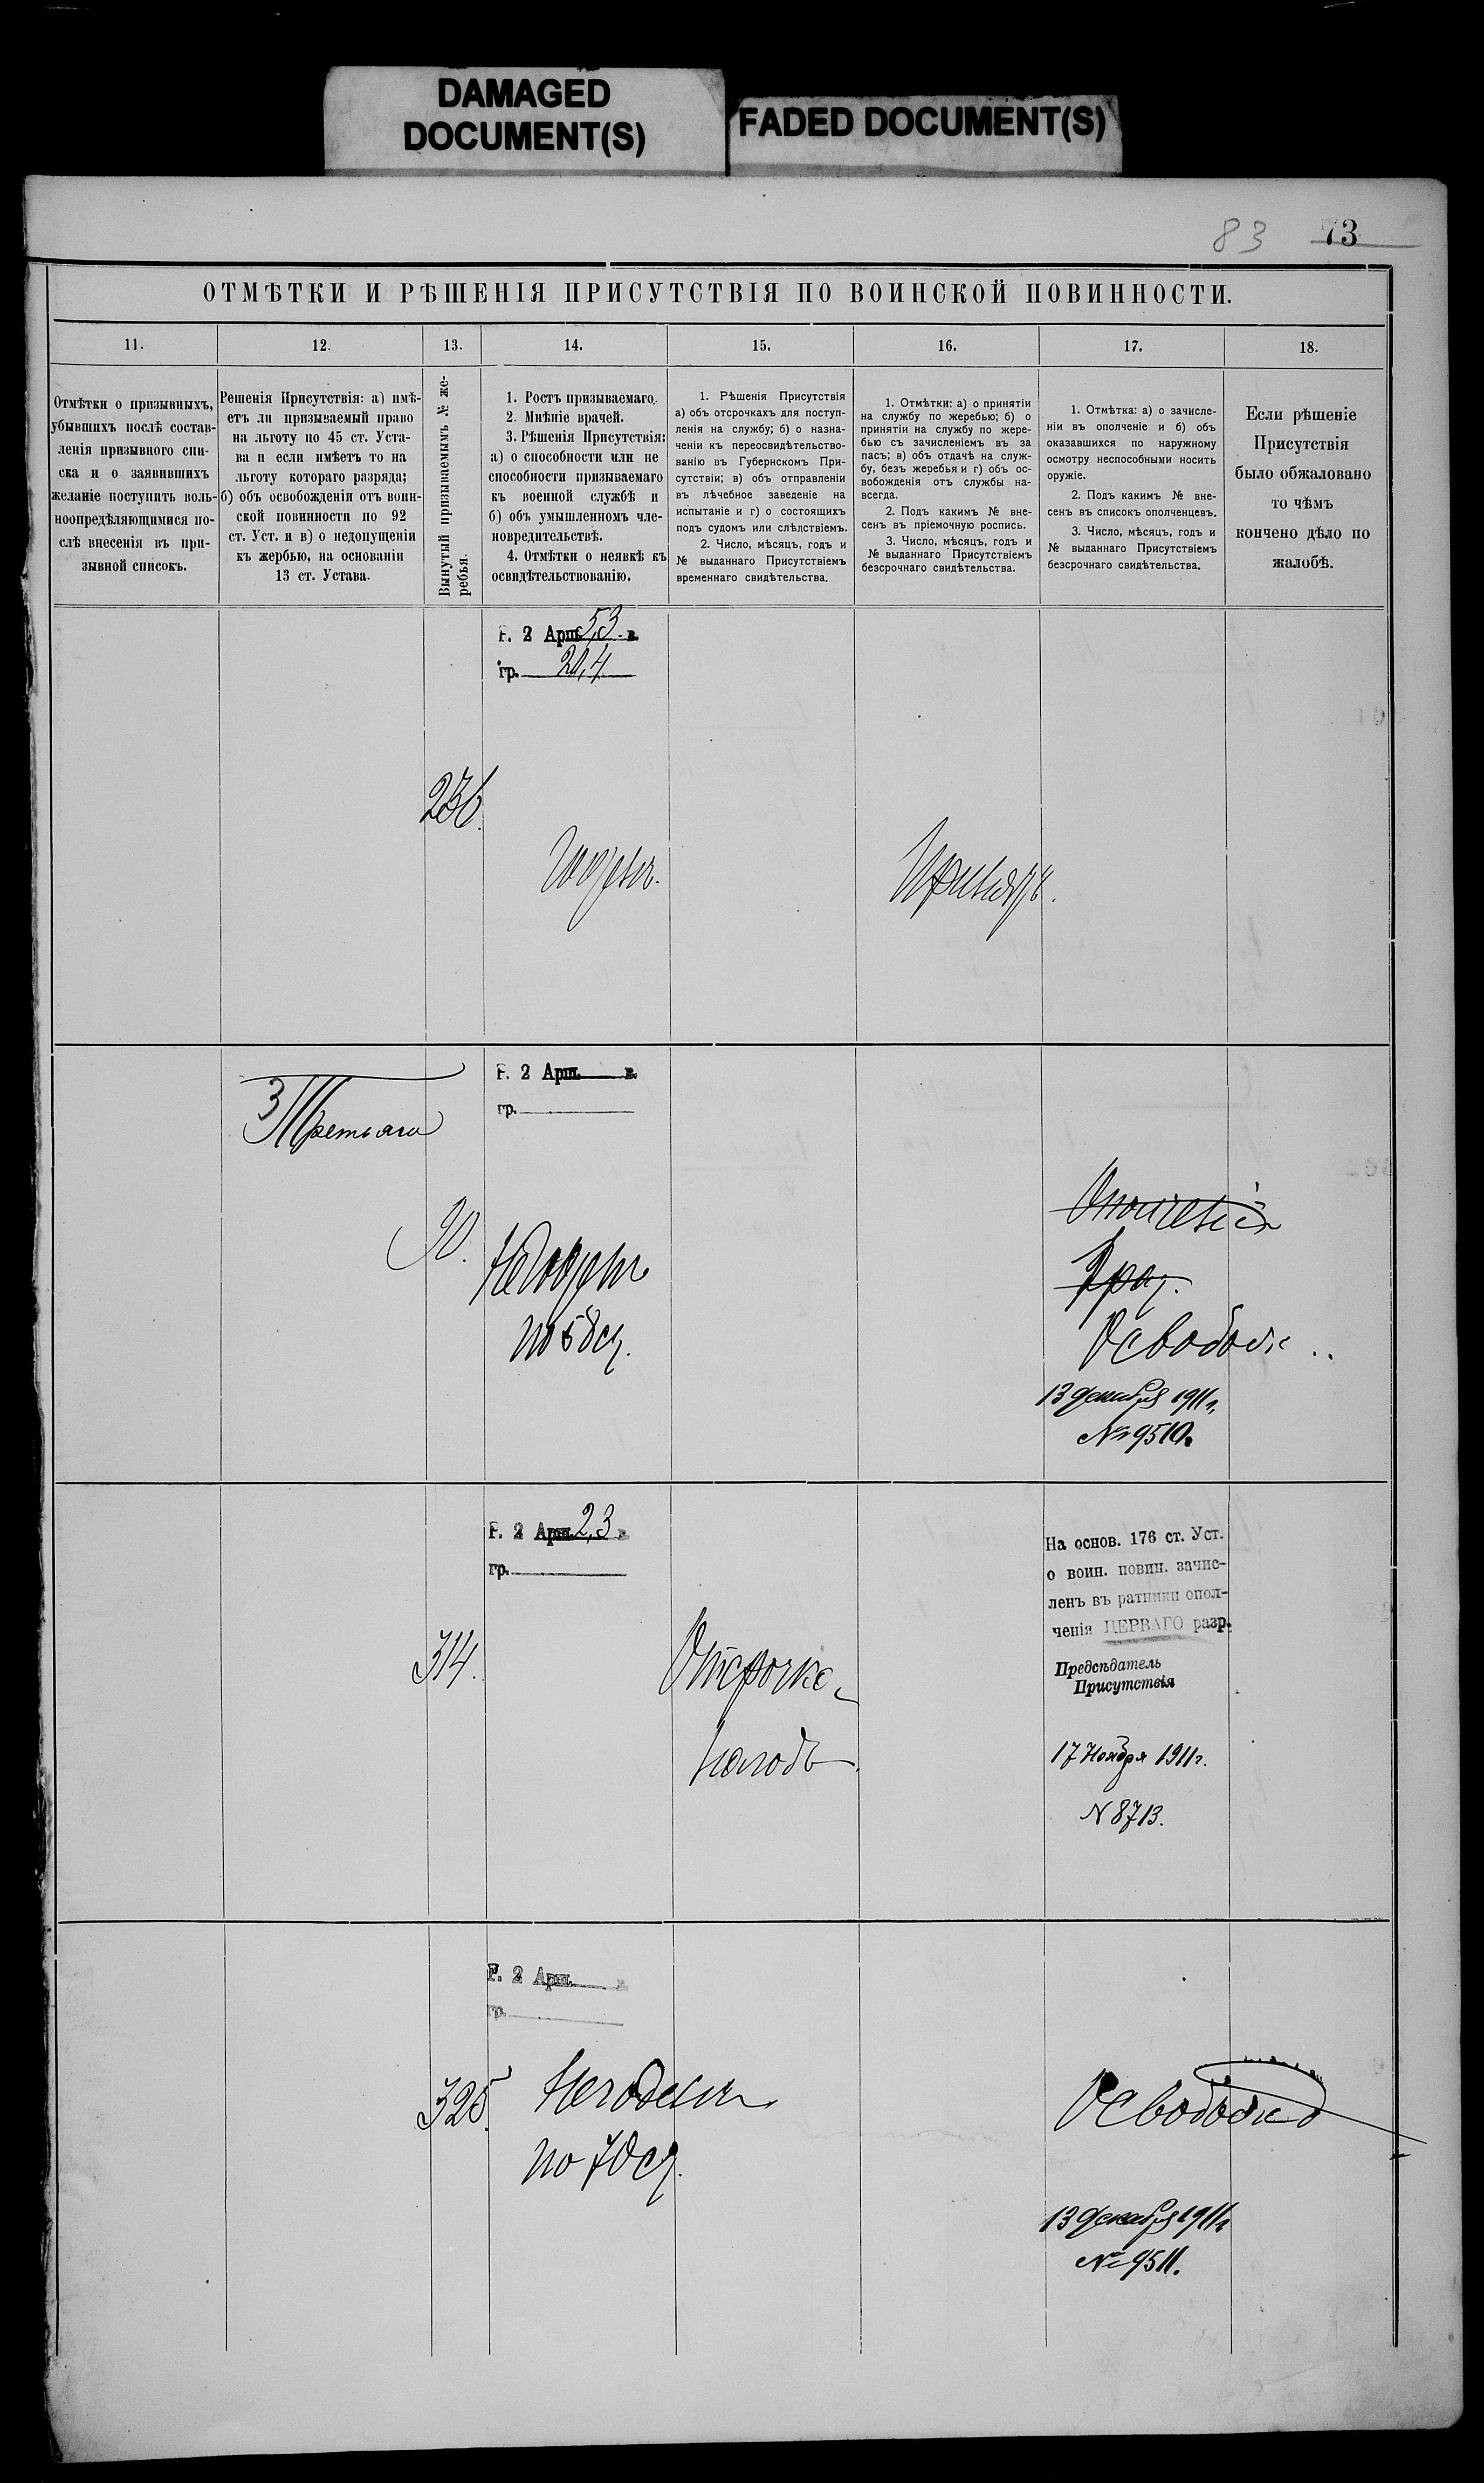 DAMAGED
DOCUMENT(S)
FADED DOCUMENT(S)
83 73
ОТМѢТКИ И РѢШЕНІЯ ПРИСУТСТВІЯ ПО ВОИНСКОЙ ПОВИННОСТИ.
11.
12.
13.
14.
15.
16.
17.
18.
Отмѣтки о призывныхъ,
убывшихъ послѣ состав-
ленія призывного спи-
ска и о заявившихъ
желаніе поступить воль-
ноопредѣляющимися по-
слѣ внесенія въ при-
зывной списокъ.
Решенія Присутствія: а) имѣ-
етъ ли призываемый право
на льготу по 45 ст. Уста-
ва и если имѣетъ то на
льготу котораго разряда;
б) объ освобожденіи отъ воин-
ской повинности по 92
ст. Уст. и в) о недопущеніи
къ жербью, на основаніи
13 ст. Устава.
Вынутый призываемымъ № же-
ребья.
1. Ростъ призываемаго.
2. Мнѣніе врачей.
3. Рѣшенія Присутствія:
а) о способности или не
способности призываемаго
къ военной службѣ и
б) объ умышленномъ чле-
новредительствѣ.
4. Отмѣтки о неявкѣ къ
освидѣтельствованію.
1. Рѣшенія Присутствія
а) объ отсрочкахъ для поступ-
ленія на службу; б) о назна-
ченіи къ переосвидѣтельство-
ванію въ Губернскомъ При-
сутствіи; в) объ отправленіи
въ лѣчебное заведеніе на
испытаніе и г) о состоящихъ
подъ судомъ или слѣдствіемъ.
2. Число, мѣсяцъ, годъ и
№ выданнаго Присутствіемъ
временнаго свидѣтельства.
1. Отмѣтки: а) о принятіи
на службу по жеребью; б) о
принятіи на службу по жере-
бью съ зачисленіемъ въ за
пасъ; в) объ отдачѣ на служ-
бу, безъ жеребья и г) объ ос-
вобожденія отъ службы на-
всегда.
2. Подъ какимъ № вне-
сенъ въ пріемочную роспись.
3. Число, мѣсяцъ, годъ и
№ выданнаго Присутствіемъ
безсрочнаго свидѣтельства.
1. Отмѣтка: а) о зачисле-
ніи въ ополченіе и б) объ
оказавшихся по наружному
осмотру неспособными носить
оружіе.
2. Подъ какимъ № вне-
сенъ въ списокъ ополченцевъ.
3. Число, мѣсяцъ, годъ и
№ выданнаго Присутствіемъ
безсрочнаго свидѣтельства.
Если рѣшеніе
Присутствія
было обжаловано
то чѣмъ
кончено дѣло по
жалобѣ.
Р. 2 Арш. 5,3 в.
гр. 20,4
236.
Годенъ.
Принять.
3 Третьяго
Р. 2 Арш. в.
гр.
90.
Негоденъ
по 58 ст.
Ополченія
Освобожд
13 декабря 1911 г.
№ 9510.
Р. 2 Арш. 2,3 в
гр.
314.
Отсрочка
на годъ.
На основ. 176 ст. Уст.
о воин. повин. зачис-
ленъ въ ратники опол-
ченія ПЕРВАГО разр.
Предсѣдатель
Присутствія
17 Ноября 1911 г.
N 8713.
Р. 2 Арш. в
гр.
325.
Негоденъ
по 70 ст.
Освобожд
13 декабря 1911 г
№ 9511.